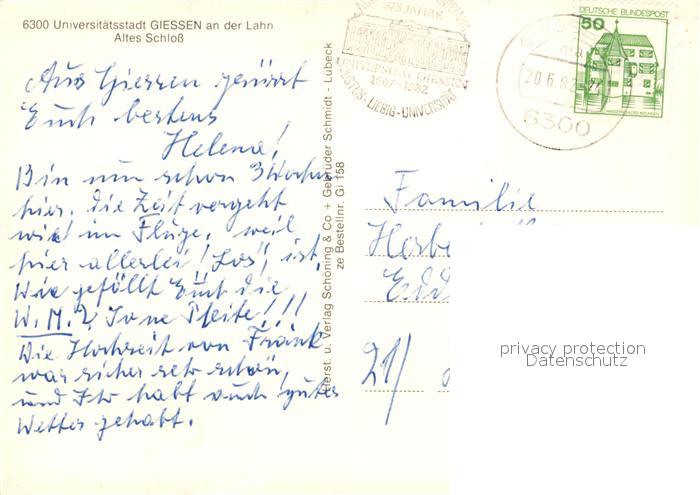 6300 Universitätsstadt GIESSEN an der Lahn
Altes Schloß
Aus Giessen grüsst
Euch bestens
Helena!
Bin nun schon 3 Wochen
hier. die Zeit vergeht
wie im Fluge, weil
hier allerlei "Los" ist,
Wie gefällt Euch die
W.M.? So ne Pleite!!!
Die Hochzeit von Frank
war sicher sehr schön,
und Ihr habt auch gutes
Wetter gehabt.
Herst. u. Verlag Schöning & Co + Gebrüder Schmidt - Lübeck
ze Bestellnr. Gi 158
375 JAHRE
UNIVERSITÄT GIESSEN
1607-1982
JUSTUS-LIEBIG-UNIVERSITÄT
20.6.82
6300
50
DEUTSCHE BUNDESPOST
Familie
Herbe
Edd
21/
privacy protection
Datenschutz